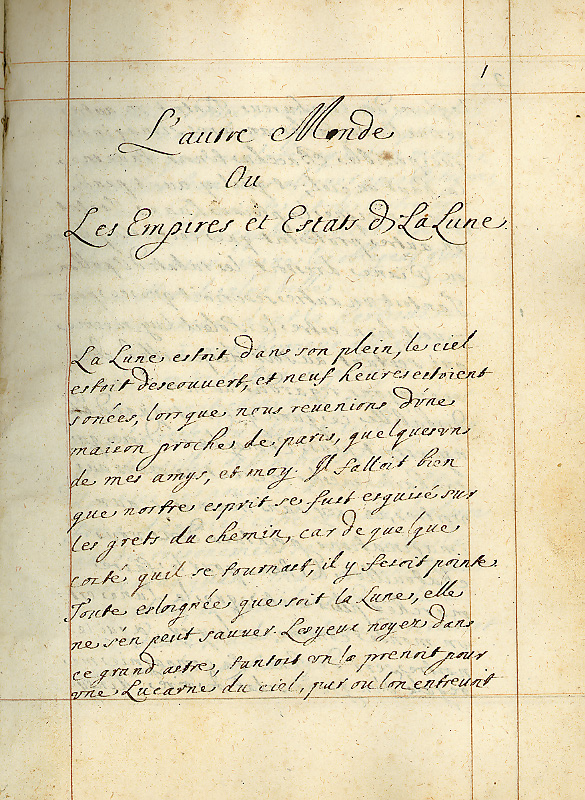 1
L'autre Monde
Ou
Les Empires et Estats de La Lune
La Lune estoit dans son plein, le ciel
estoit descouvert, et neuf heures estoient
sonées, lorsque nous revenions d'vne
maison proche de paris, quelques vns
de mes amys, et moy. Il falloit bien
que nostre esprit se fust esguisé sur
les grets du chemin, car de quelque
costé quil se tournast, il y fesoit pointe
Toute esloignée que soit la Lune, elle
ne s'en peut sauver. Les yeux noyez dans
ce grand astre, tantost vn la prenoit pour
vne Lucarne du ciel, par ou lon